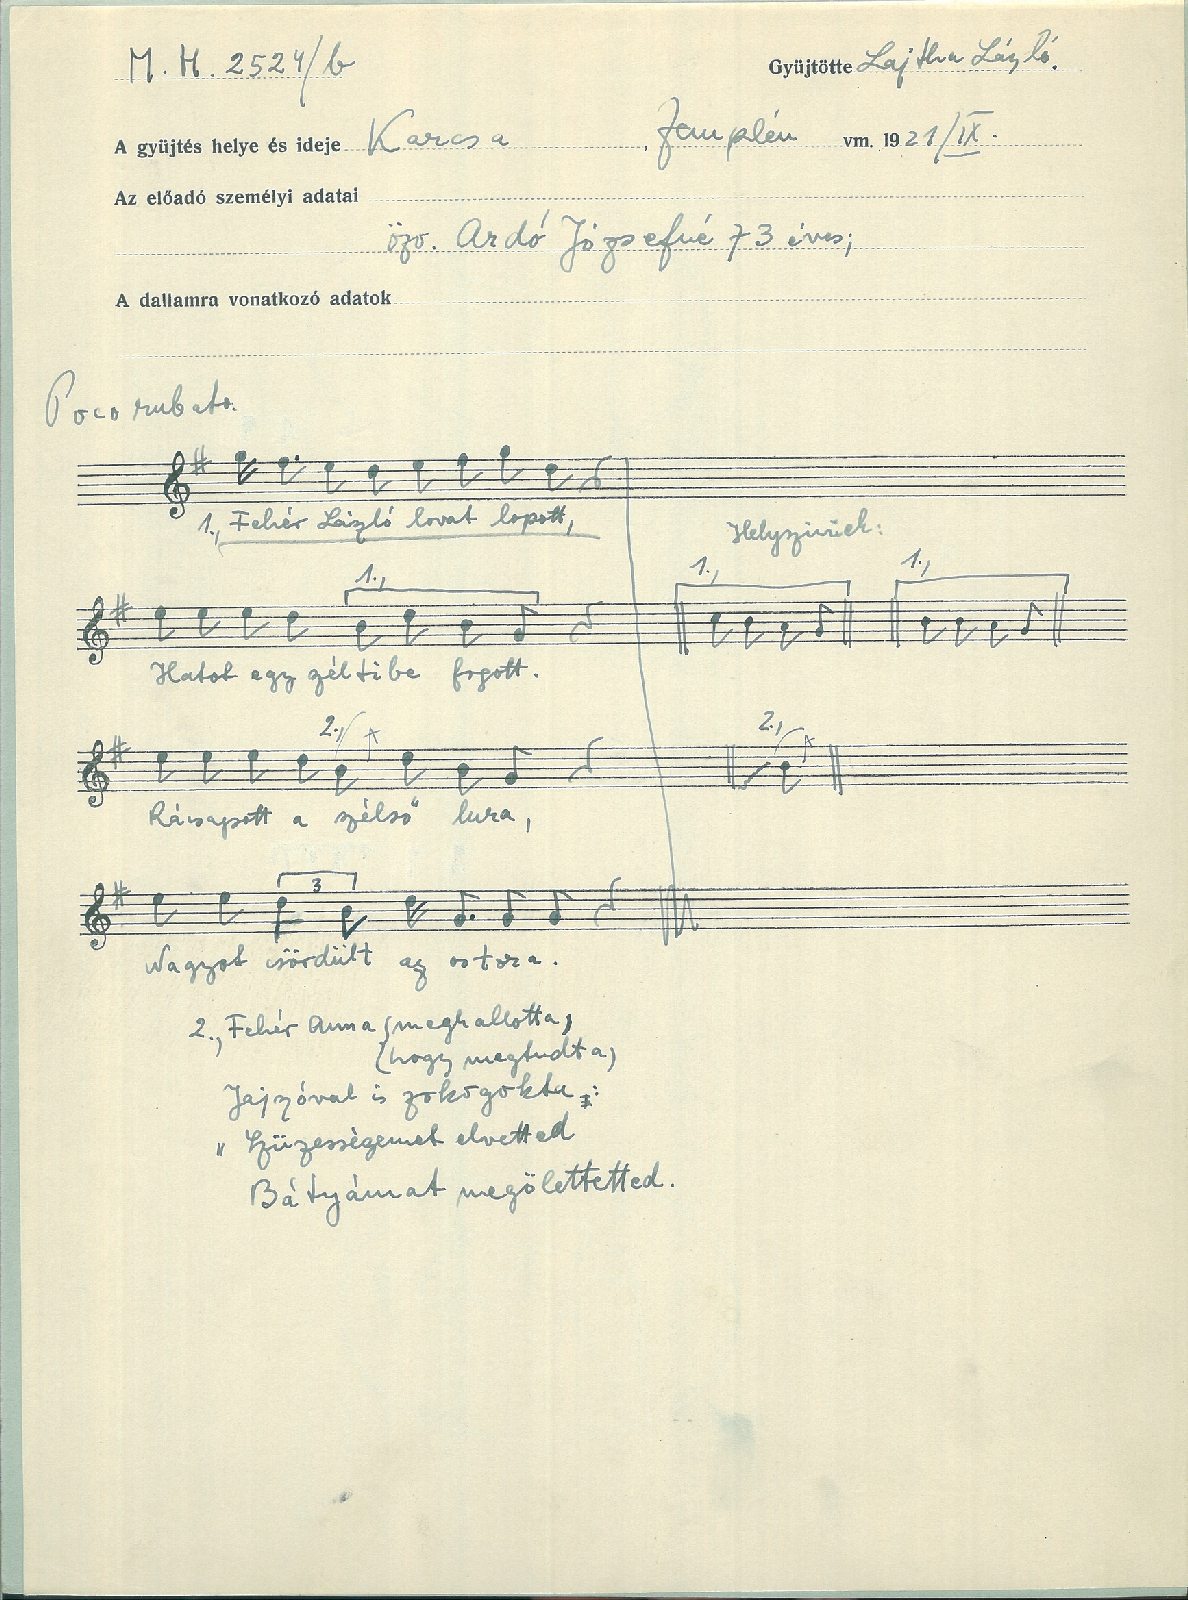 M. H. 2524/b
Gyüjtötte Lajtha László.
A gyüjtés helye és ideje Karcsa, Zemplén vm. 1921/IX.
Az előadó személyi adatai
özv. Ardó Józsefné 73 éves;
A dallamra vonatkozó adatok
Poco rubato.
1., Fehér László lovat lopott,
Helyszinűek:
1.,
1.,
1.,
Hatot egy zéltibe fogott.
2.,
2.,
Rácsapott a szélső lura,
3
Nagyot csördült az ostora.
2., Fehér Anna (meghallotta,
(hogy megtudta,
Jajszóval is zokogokta:
„Szüzességemet elvetted
Bátyámat megölettetted.